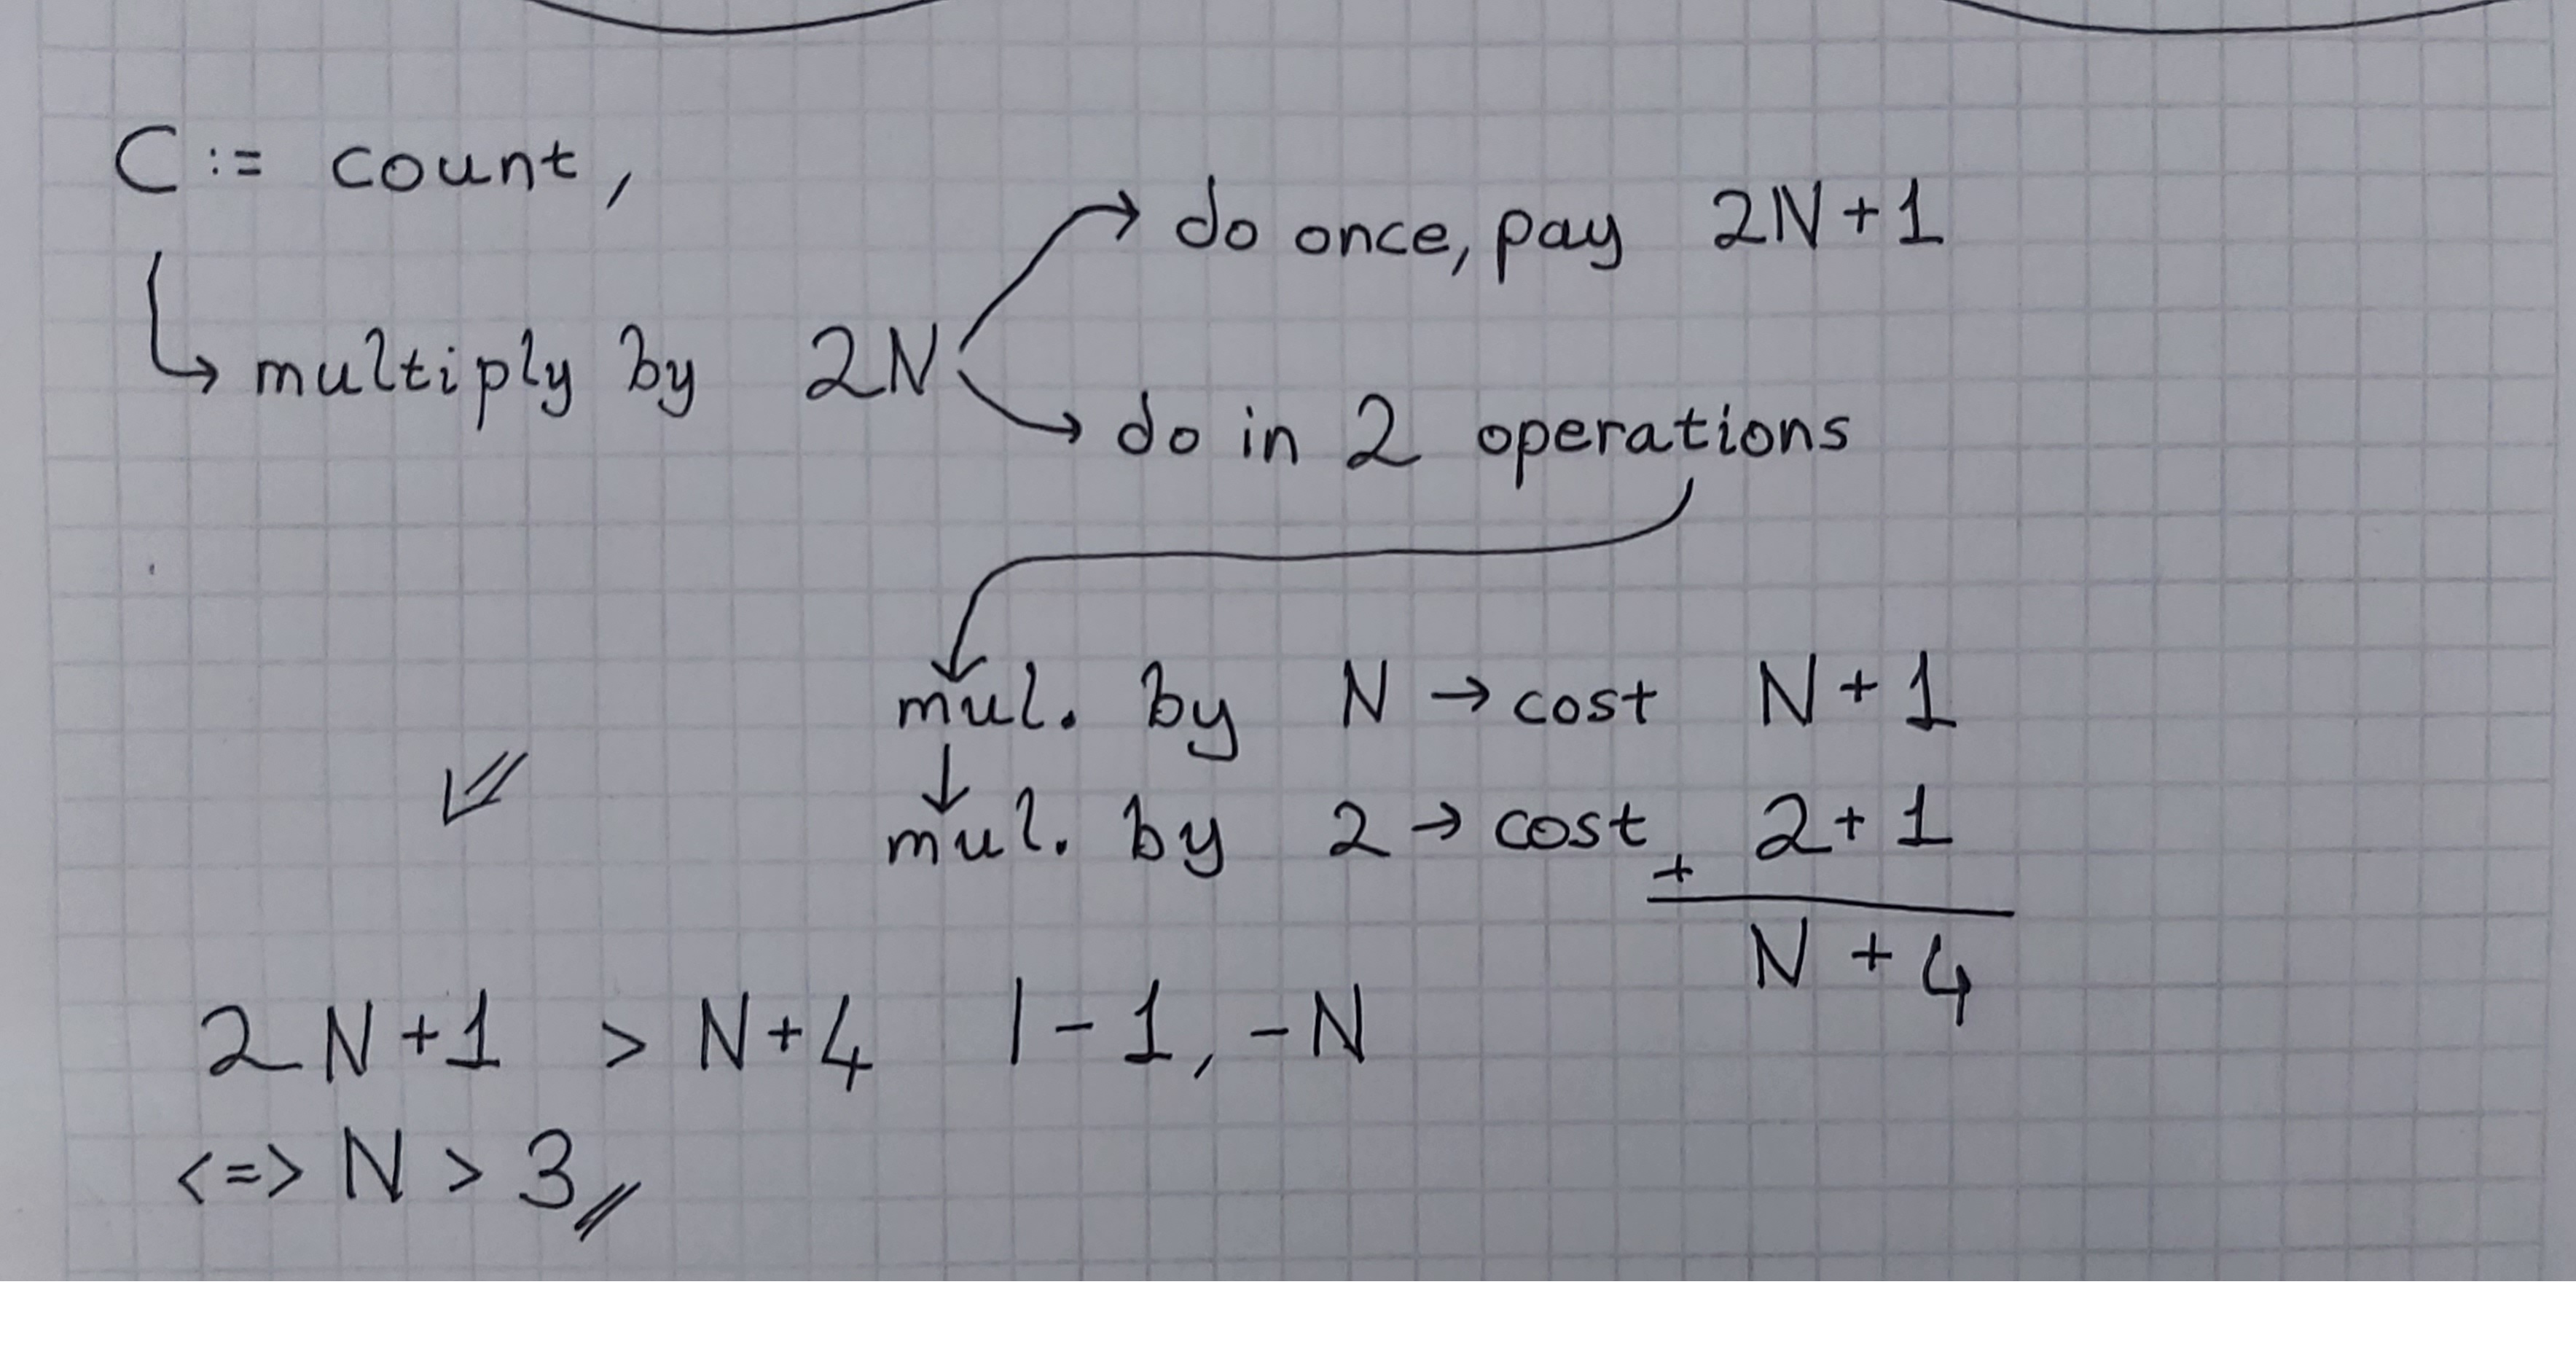 C := count,
do once, pay 2N+1
multiply by 2N
do in 2 operations
mul. by N → cost N+1
mul. by 2 → cost + 2+1
N+4
2N+1 > N+4 |-1, -N
<=> N > 3